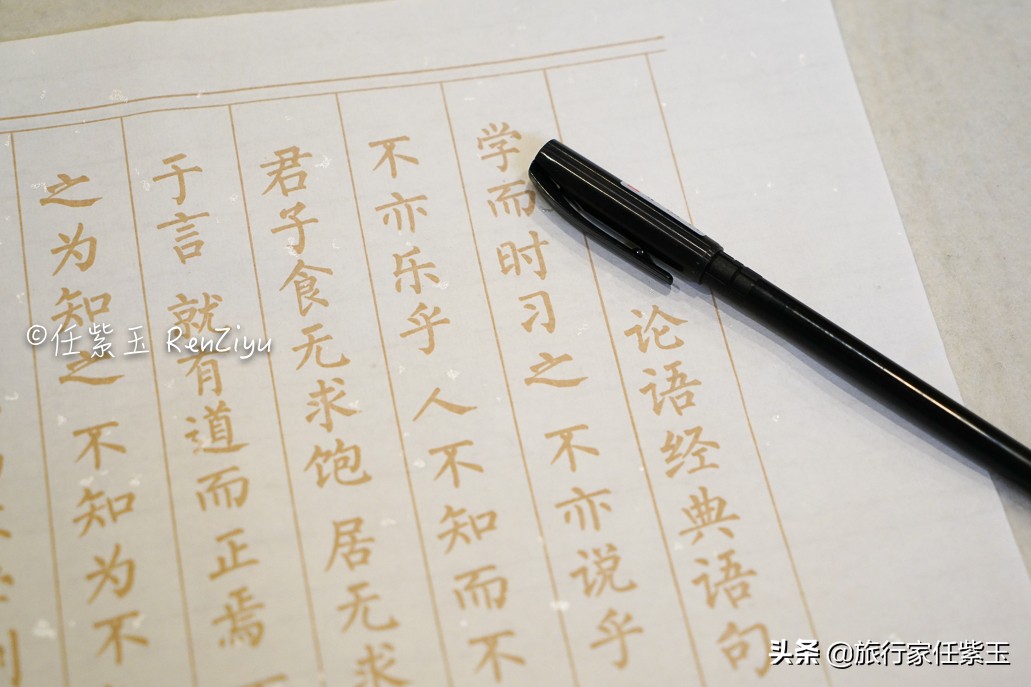 论语经典语句
学而时习之 不亦说乎
不亦乐乎 人不知而不
君子食无求饱 居无求
于言 就有道而正焉
之为知之 不知为不
©任紫玉 RenZiyu
头条 @旅行家任紫玉